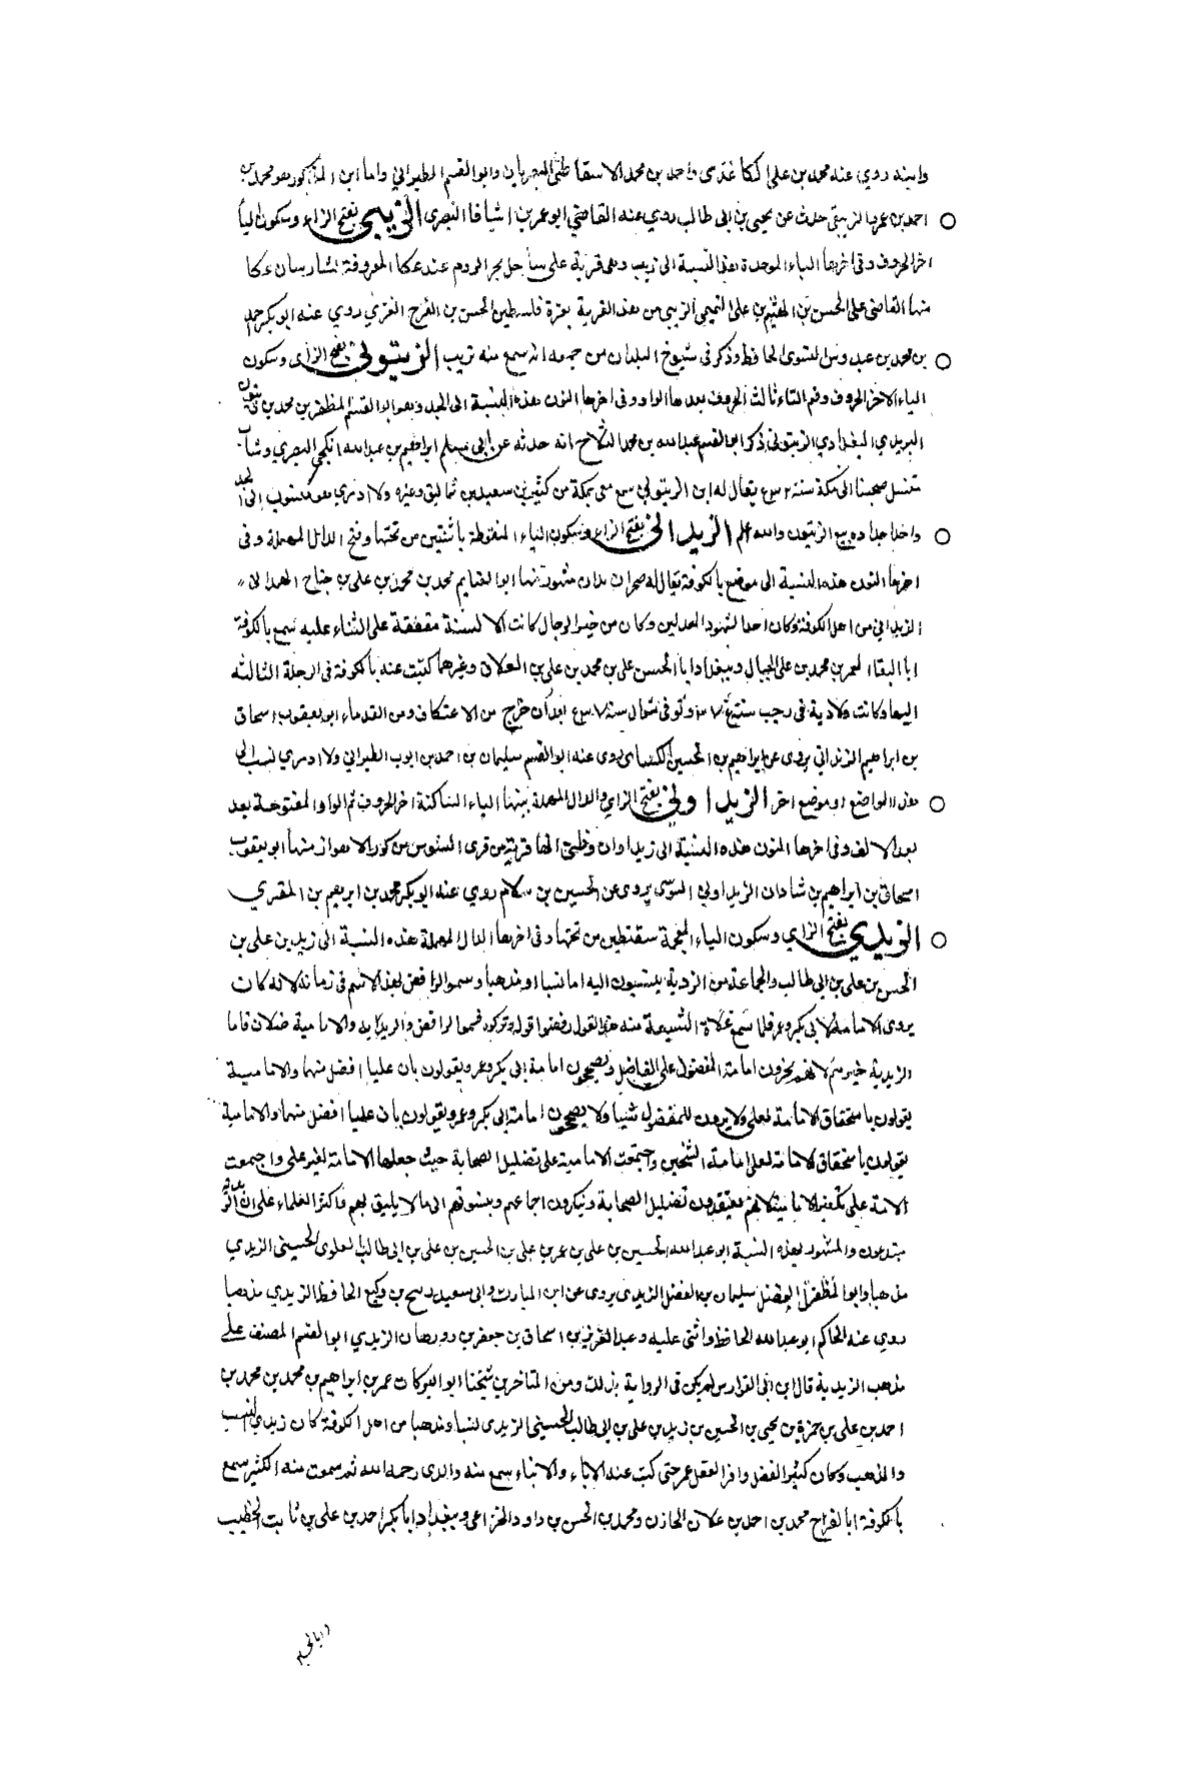 وابنه روي عنه محمد بن علي الكاغذي واحمد بن محمد الاسقاطي البصريان وابو القسم الطبراني واما ابن المذكور هو محمد بن
احمد بن عمرو الزيبقي حدث عن يحيى بن ابي طالب روي عنه القاضي ابو عمر بن اشيافا البصري الزيبي بفتح الزاء وسكون اليا
اخر الحروف وفي اخرها الباء الموحدة هذه النسبة الى زيب وهي قرية على ساحل بحر الروم عند عكا المعروفة بشارسان عكا
منها القاضي علي الحسن بن الهيثم بن علي التميمي الزيبي من هذه القرية بغزة فلسطين الحسن بن الفرج الغزي روي عنه ابو بكر احمد
بن محمد بن عبدوس النسوي الحافظ وذكر في شيوخ البلدان من جمعه انه سمع منه بزيب الزيتوني بفتح الزاى وسكون
الياء الاخر الحروف وضم التاء ثالث الحروف بعدها الواو وفي اخرها النون هذه النسبة الى الجد وهو ابو القسم المظفر بن محمد بن زيتون
البريدي البغدادي الزيتوني ذكر ابو القسم عبد الله بن محمد الثلاج انه حدثه عن ابي مسلم ابراهيم بن عبد الله الكجي البصري وشاب
صحبنا الى مكة سنة يقال له ابن الزيتوني سمع معي بمكة من كثير بن سعيد بن شماليق وغيره ولا ادري هو منسوب الى الجد
واحد اجداده يبيع الزيتون والله اعلم الزيداني بفتح الزاء وسكون الياء المنقوطة باثنتين من تحتها وفتح الدال المهملة وفي
اخرها النون هذه النسبة الى موضع بالكوفة يقال له صحراء زيدان مشهور منها ابو الغنايم محمد بن محمد بن علي بن جناح الهمداني
الزيداني من اهل الكوفة وكان احد الشهود المعدلين وكان من خير الرجال كانت الالسنة متفقة على الثناء عليه سمع بالكوفة
ابا البقاء المعمر بن محمد بن علي الحبال وببغداد ابا الحسن علي بن محمد بن علي بن العلاف وغيرهما كتبت عنه بالكوفة في الرحلة الثالثة
اليها وكانت ولادته في رجب سنة وتوفي شوال سنة بعد ان خرج من الاعتكاف ومن القدماء ابو يعقوب اسحاق
بن ابراهيم الزيداني يروى عن ابراهيم بن الحسين الكسائي روى عنه ابو القسم سليمان بن احمد بن ايوب الطبراني ولا ادري نسب الى
هذا المواضع او موضع اخر الزيداوني بفتح الزاي والدال المهملة بينهما الياء الساكنة اخر الحروف ثم الواو المفتوحة بعد
بعد الالف وفي اخرها النون هذه النسبة الى زيداوان وظني انها قرية من قرى السوس من كور الاهواز منها ابو يعقوب
اسحاق بن ابراهيم بن شاذان الزيداوني السوسي يروى عن الحسين بن سلام روي عنه ابو بكر محمد بن ابرهيم بن المقري
الزيدي بفتح الزاي وسكون الياء المعجمة بنقطتين من تحتها وفي اخرها الدال المهملة هذه النسبة الى زيد بن علي بن
الحسين بن علي بن ابي طالب والجماعة من الزيدية ينتسبون اليه اما نسبا او مذهبا وسموا الرافض بهذا الاسم في زمانه لانه كان
يرى الامامة لابي بكر وعمر فلما سمع غلاة الشيعة منه هذا القول رفضوا قوله وتركوه فسموا الرافض والزيدية والامامية ضلان فاما
الزيدية خير منهم لانهم يجوزون امامة المفضول على الفاضل ويصححون امامة ابي بكر وعمر ويقولون بان عليا افضل منهما والامامية
يقولون باستحقاق الامامة لعلي ولا يرون للمفضول شيا ولا يصححون امامة ابي بكر وعمر ويقولون بان عليا افضل منهما والامامية
يقولون باستحقاق الامامة لعلي امامة الشيخين واجتمعت الامامية على تضليل الصحابة حيث جعلوا الامامة لغير علي واجتمعت
الامة على تكفير الامامية لانهم يعتقدون تضليل الصحابة وينكرون اجماعهم وينسبونهم الى ما لا يليق بهم واكثر العلماء على ان الزيدية
مبتدعون والمشهور بهذه النسبة ابو عبد الله الحسين بن علي بن عمر بن علي بن الحسين بن علي بن ابي طالب العلوى الحسيني الزيدي
مذهبا وابو المظفر الفضل سليمان بن الفضل الزيدي يروى عن ابن المبارك وابي سعيد بن وكيع الحافظ الزيدي مذهبا
روي عنه الحاكم ابو عبد الله الحافظ واثنى عليه وعبد العزيز بن اسحاق بن جعفر بن روزبهان الزيدي ابو القسم المصنف على
مذهب الزيدية قال ابن ابي الفوارس لم يكن في الرواية بذلك ومن المتاخرين شيخنا ابو البركات عمر بن ابراهيم بن محمد بن محمد بن
احمد بن علي بن حمزة بن يحيى بن الحسين بن زيد بن علي بن ابي طالب الحسيني الزيدي نسبا ومذهبا من اهل الكوفة كان زيدي النسب
والمذهب وكان كثير الفضل وافر العقل عمر حتى كتب عنه الاباء والابناء سمع منه والدى رحمه الله ثم سمعت منه الكثير سمع
بالكوفة ابا الفرج محمد بن احمد بن علان الخازن ومحمد بن الحسن بن داود الخزاعي وببغداد ابا بكر احمد بن علي بن ثابت الخطيب